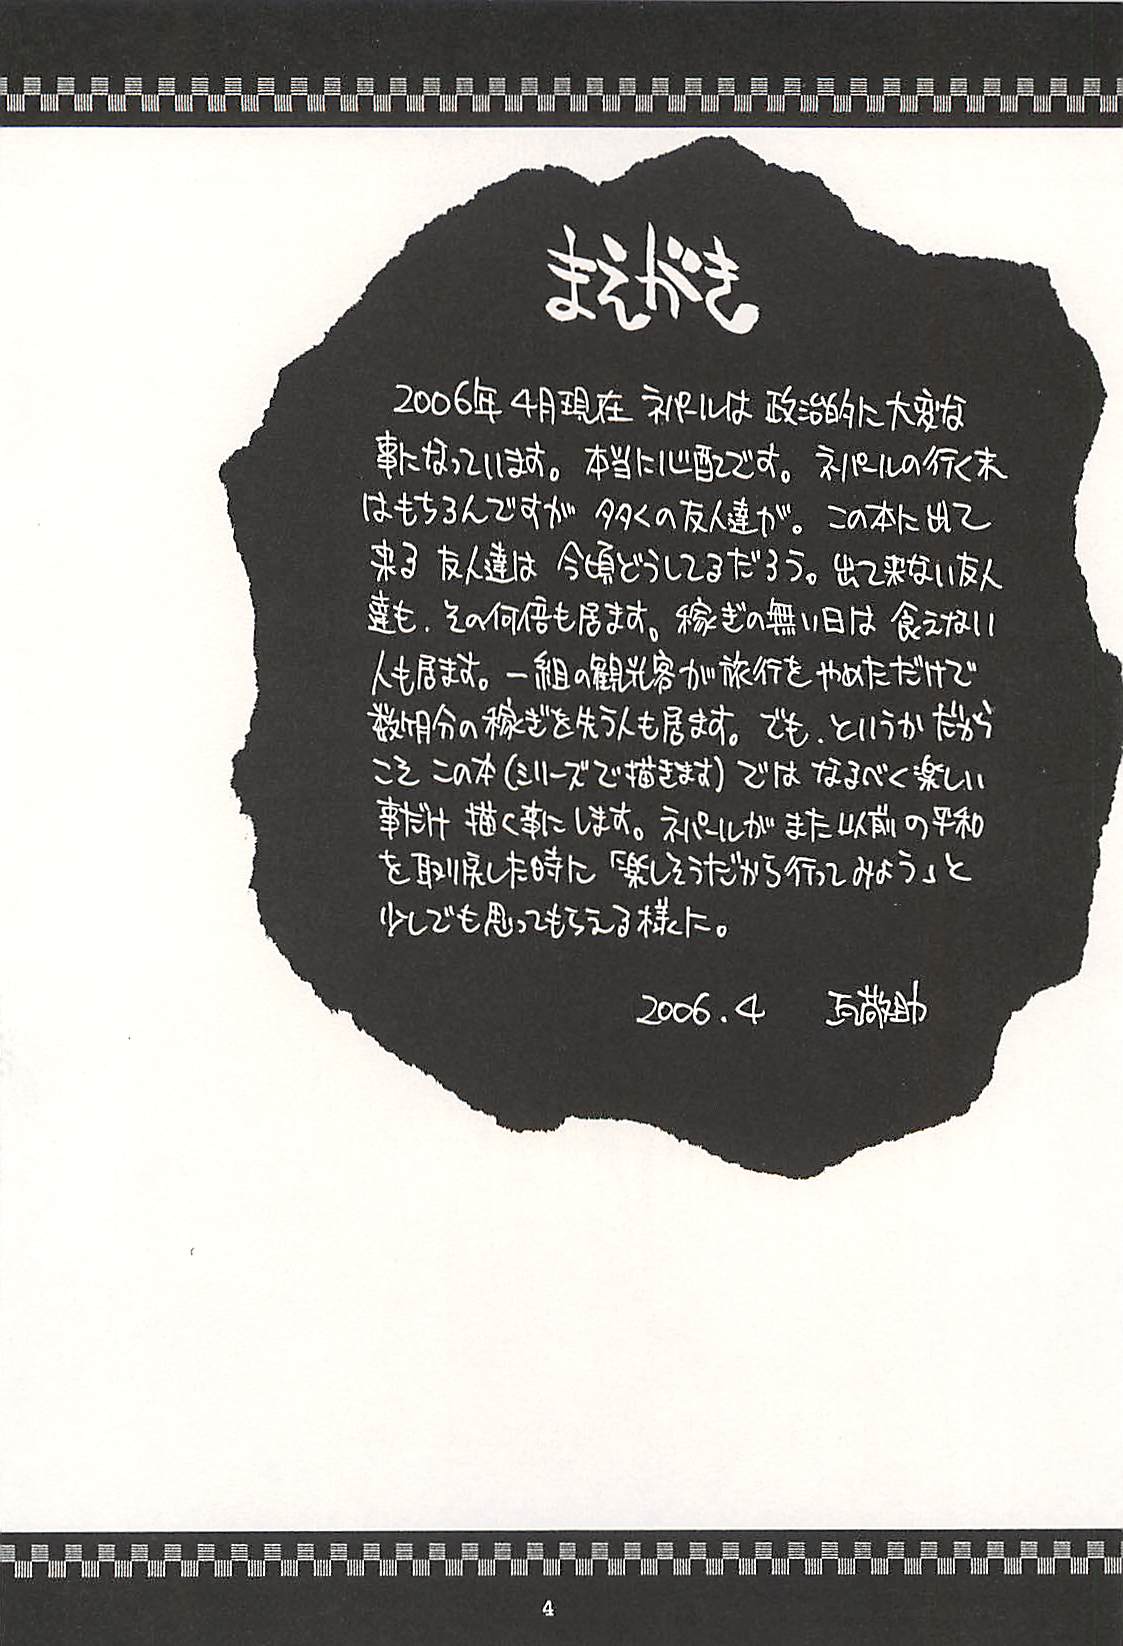 まえがき
2006年4月現在 ネパールは 政治的に大変な
事になっています。本当に心配です。ネパールの行く末
はもちろんですが 多くの友人達が。この本に出て
来る 友人達は 今頃どうしてるだろう。出て来ない友人
達も、その何倍も居ます。稼ぎの無い日は 食えない
人も居ます。一組の観光客が旅行をやめただけで
数ヶ月分の稼ぎを失う人も居ます。でも、というかだから
こそ この本(シリーズで描きます)では なるべく楽しい
事だけ 描く事にします。ネパールが また以前の平和
を取り戻した時に「楽しそうだから行ってみよう」と
少しでも思ってもらえる様に。
2006.4 瓦敬助
4